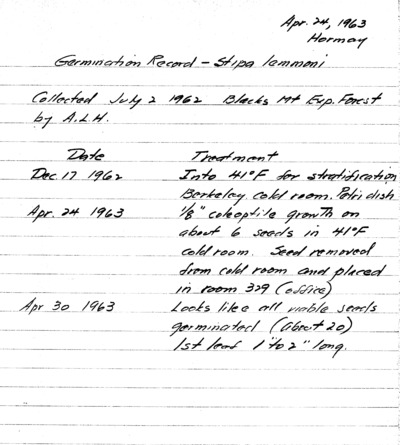 Apr. 24, 1963
Hormay
Germination Record - Stipa lemmoni
Collected July 2 1962 Blacks Mt Exp. Forest
by A.L.H.
Date Treatment
Dec. 17 1962 Into 41°F for stratification
Berkeley cold room. Petri dish
Apr. 24 1963 1/8" coleoptile growth on
about 6 seeds in 41°F
cold room. Seed removed
from cold room and placed
in room 329 (office)
Apr 30 1963 Looks like all viable seeds
germinated (about 20)
1st leaf 1" to 2" long.